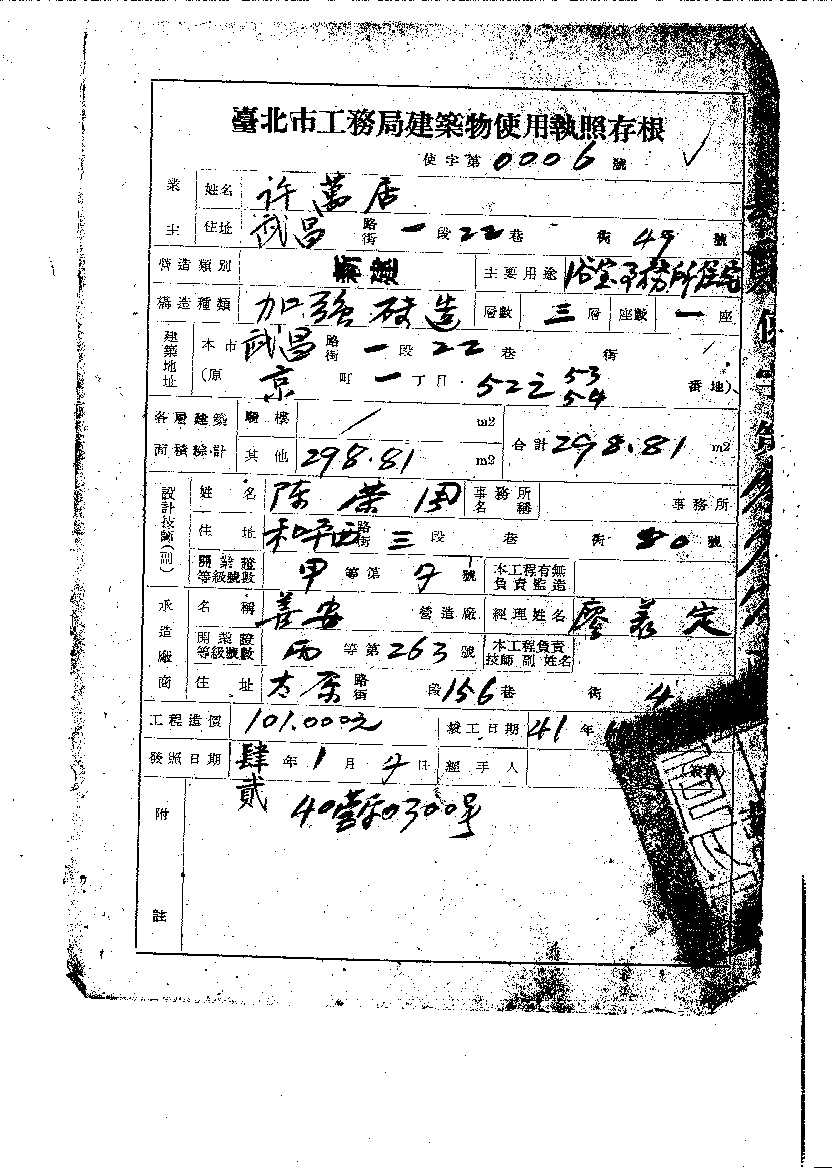 臺北市工務局建築物使用執照存根
使字第0006號
業主 姓名 许萬居
住址 武昌 路街 一段22巷 街 49 號
營造類別 新建 主要用途 浴室事務所住宅
構造種類 加強磚造 層數 三層 座數 一座
建築地址 本市 武昌 路街 一段 22 巷 街
(原 京町一丁目 52之53 54 番地)
各層建築面積綜計 騎樓 / m2
其他 298.81 m2 合計 298.81 m2
設計技師(副) 姓名 陈荣周 事務所名稱 事務所
住址 和平西 路街 三段 巷 街 80 號
開業證等級號數 甲等第 7 號 本工程有無負責監造
承造廠商 名稱 善安 營造廠 經理姓名 廖義定
開業證等級號數 丙等第263號 本工程負責技師副姓名
住址 太原 路街 段156巷 街 4
工程造價 101.000元 竣工日期 41年
發照日期 肆貳年1月7日 經手人
附註 40營字0300号